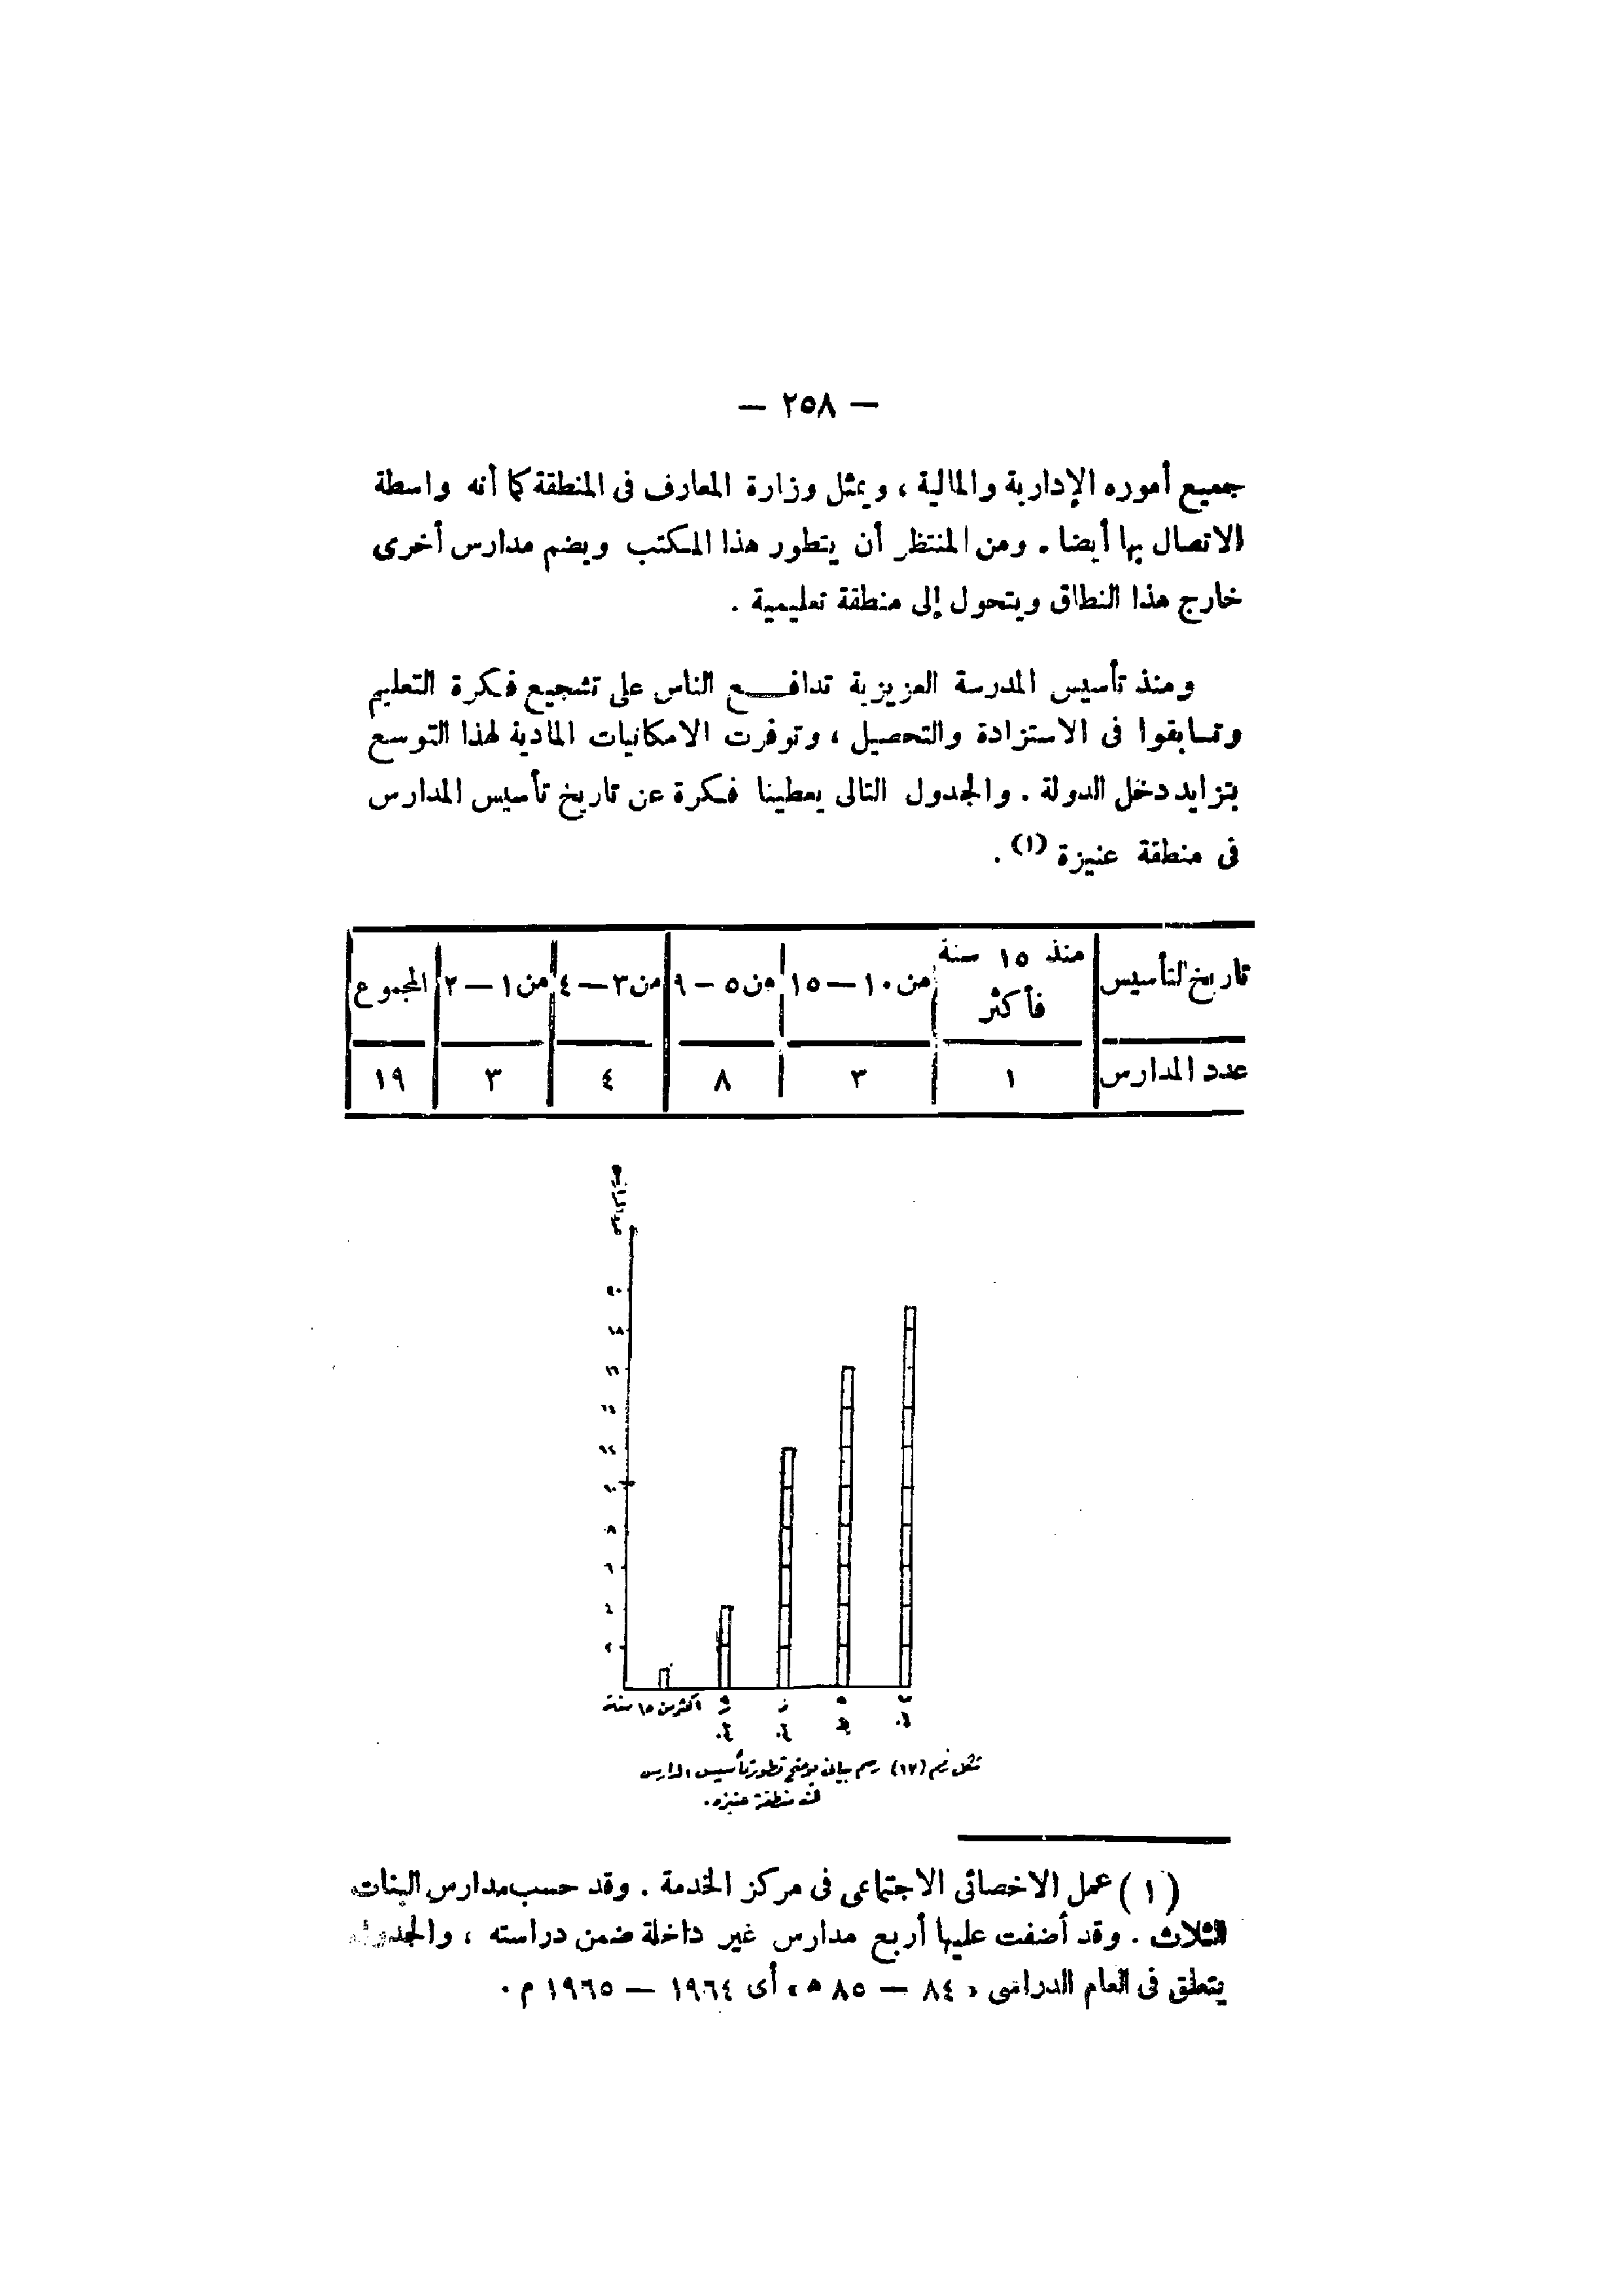 — ٢٥٨ —
جميع أموره الإدارية والمالية ، ويمثل وزارة المعارف فى المنطقة كما أنه واسطة
الاتصال بها أيضا . ومن المنتظر أن يتطور هذا المكتب ويضم مدارس أخرى
خارج هذا النطاق ويتحول إلى منطقة تعليمية .
ومنذ تأسيس المدرسة العزيزية تدافع الناس على تشجيع فكرة التعليم
وتسابقوا فى الاستزادة والتحصيل ، وتوفرت الامكانيات المادية لهذا التوسع
بتزايد دخل الدولة . والجدول التالى يعطينا فكرة عن تاريخ تأسيس المدارس
فى منطقة عنيزة (١) .
تاريخ التأسيس منذ ١٥ سنة فأكثر من ١٠ — ١٥ من ٥ — ٩ من ٣ — ٤ من ١ — ٢ المجموع
عدد المدارس ١ ٣ ٨ ٤ ٣ ١٩
٢٠
١٨
١٦
١٤
١٢
١٠
٨
٦
٤
٢
أكثر من ١٥ سنة
شكل رقم (١٧) رسم بيانى يوضح تطور تأسيس المدارس
فى منطقة عنيزة .
(١) عمل الاخصائى الاجتماعى فى مركز الخدمة . وقد حسب مدارس البنات
الثلاث . وقد أضفت عليها أربع مدارس غير داخلة ضمن دراسته ، والجدول
يتعلق فى العام الدراسى « ٨٤ — ٨٥ ه » أى ١٩٦٤ — ١٩٦٥ م .